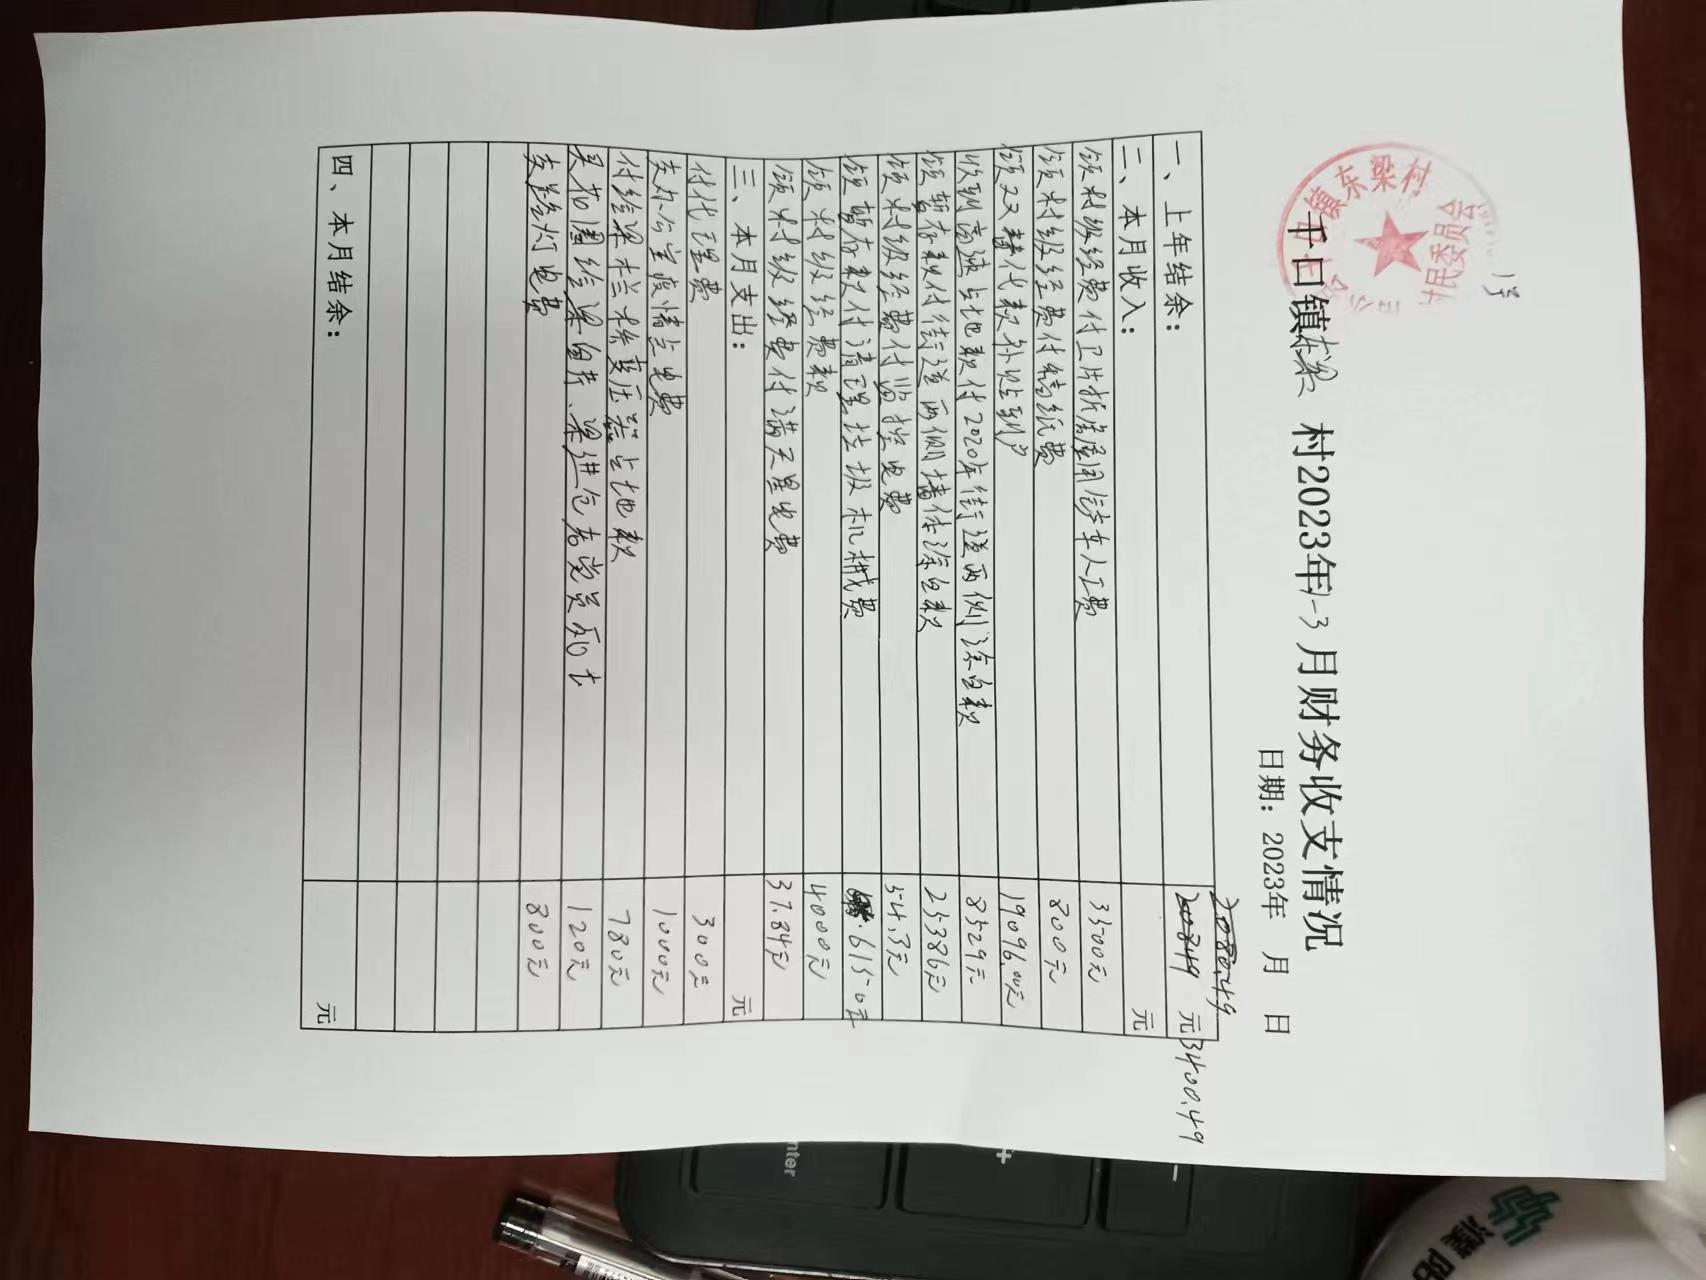 1号
镇东梁村
村民委员会
千口镇东梁 村2023年1-3月财务收支情况
日期：2023年 月 日
2080.49
一、上年结余： 20849 元 3400.49
二、本月收入： 元
领村级经费付卫片拆房屋用铲车人工费 3500元
领村级经费付稿纸费 800元
领双替代款补贴到户 19096.00元
收到高速占地款付2020年街道两侧涂白款 8529元
领暂存款付街道两侧墙体涂白款 25386元
领村级经费付监控电费 54.3元
领暂存款付清理垃圾机械费 6150元
领村级经费款 4000元
领村级经费付满天星电费 37.84元
三、本月支出： 元
付代理费 300元
交办公室疫情点电费 1000元
付给梁栏桥变压器占地款 780元
买花圈给梁自芹、梁进仓老党员死亡 120元
交路灯电费 800元
四、本月结余： 元
濮阳
enter